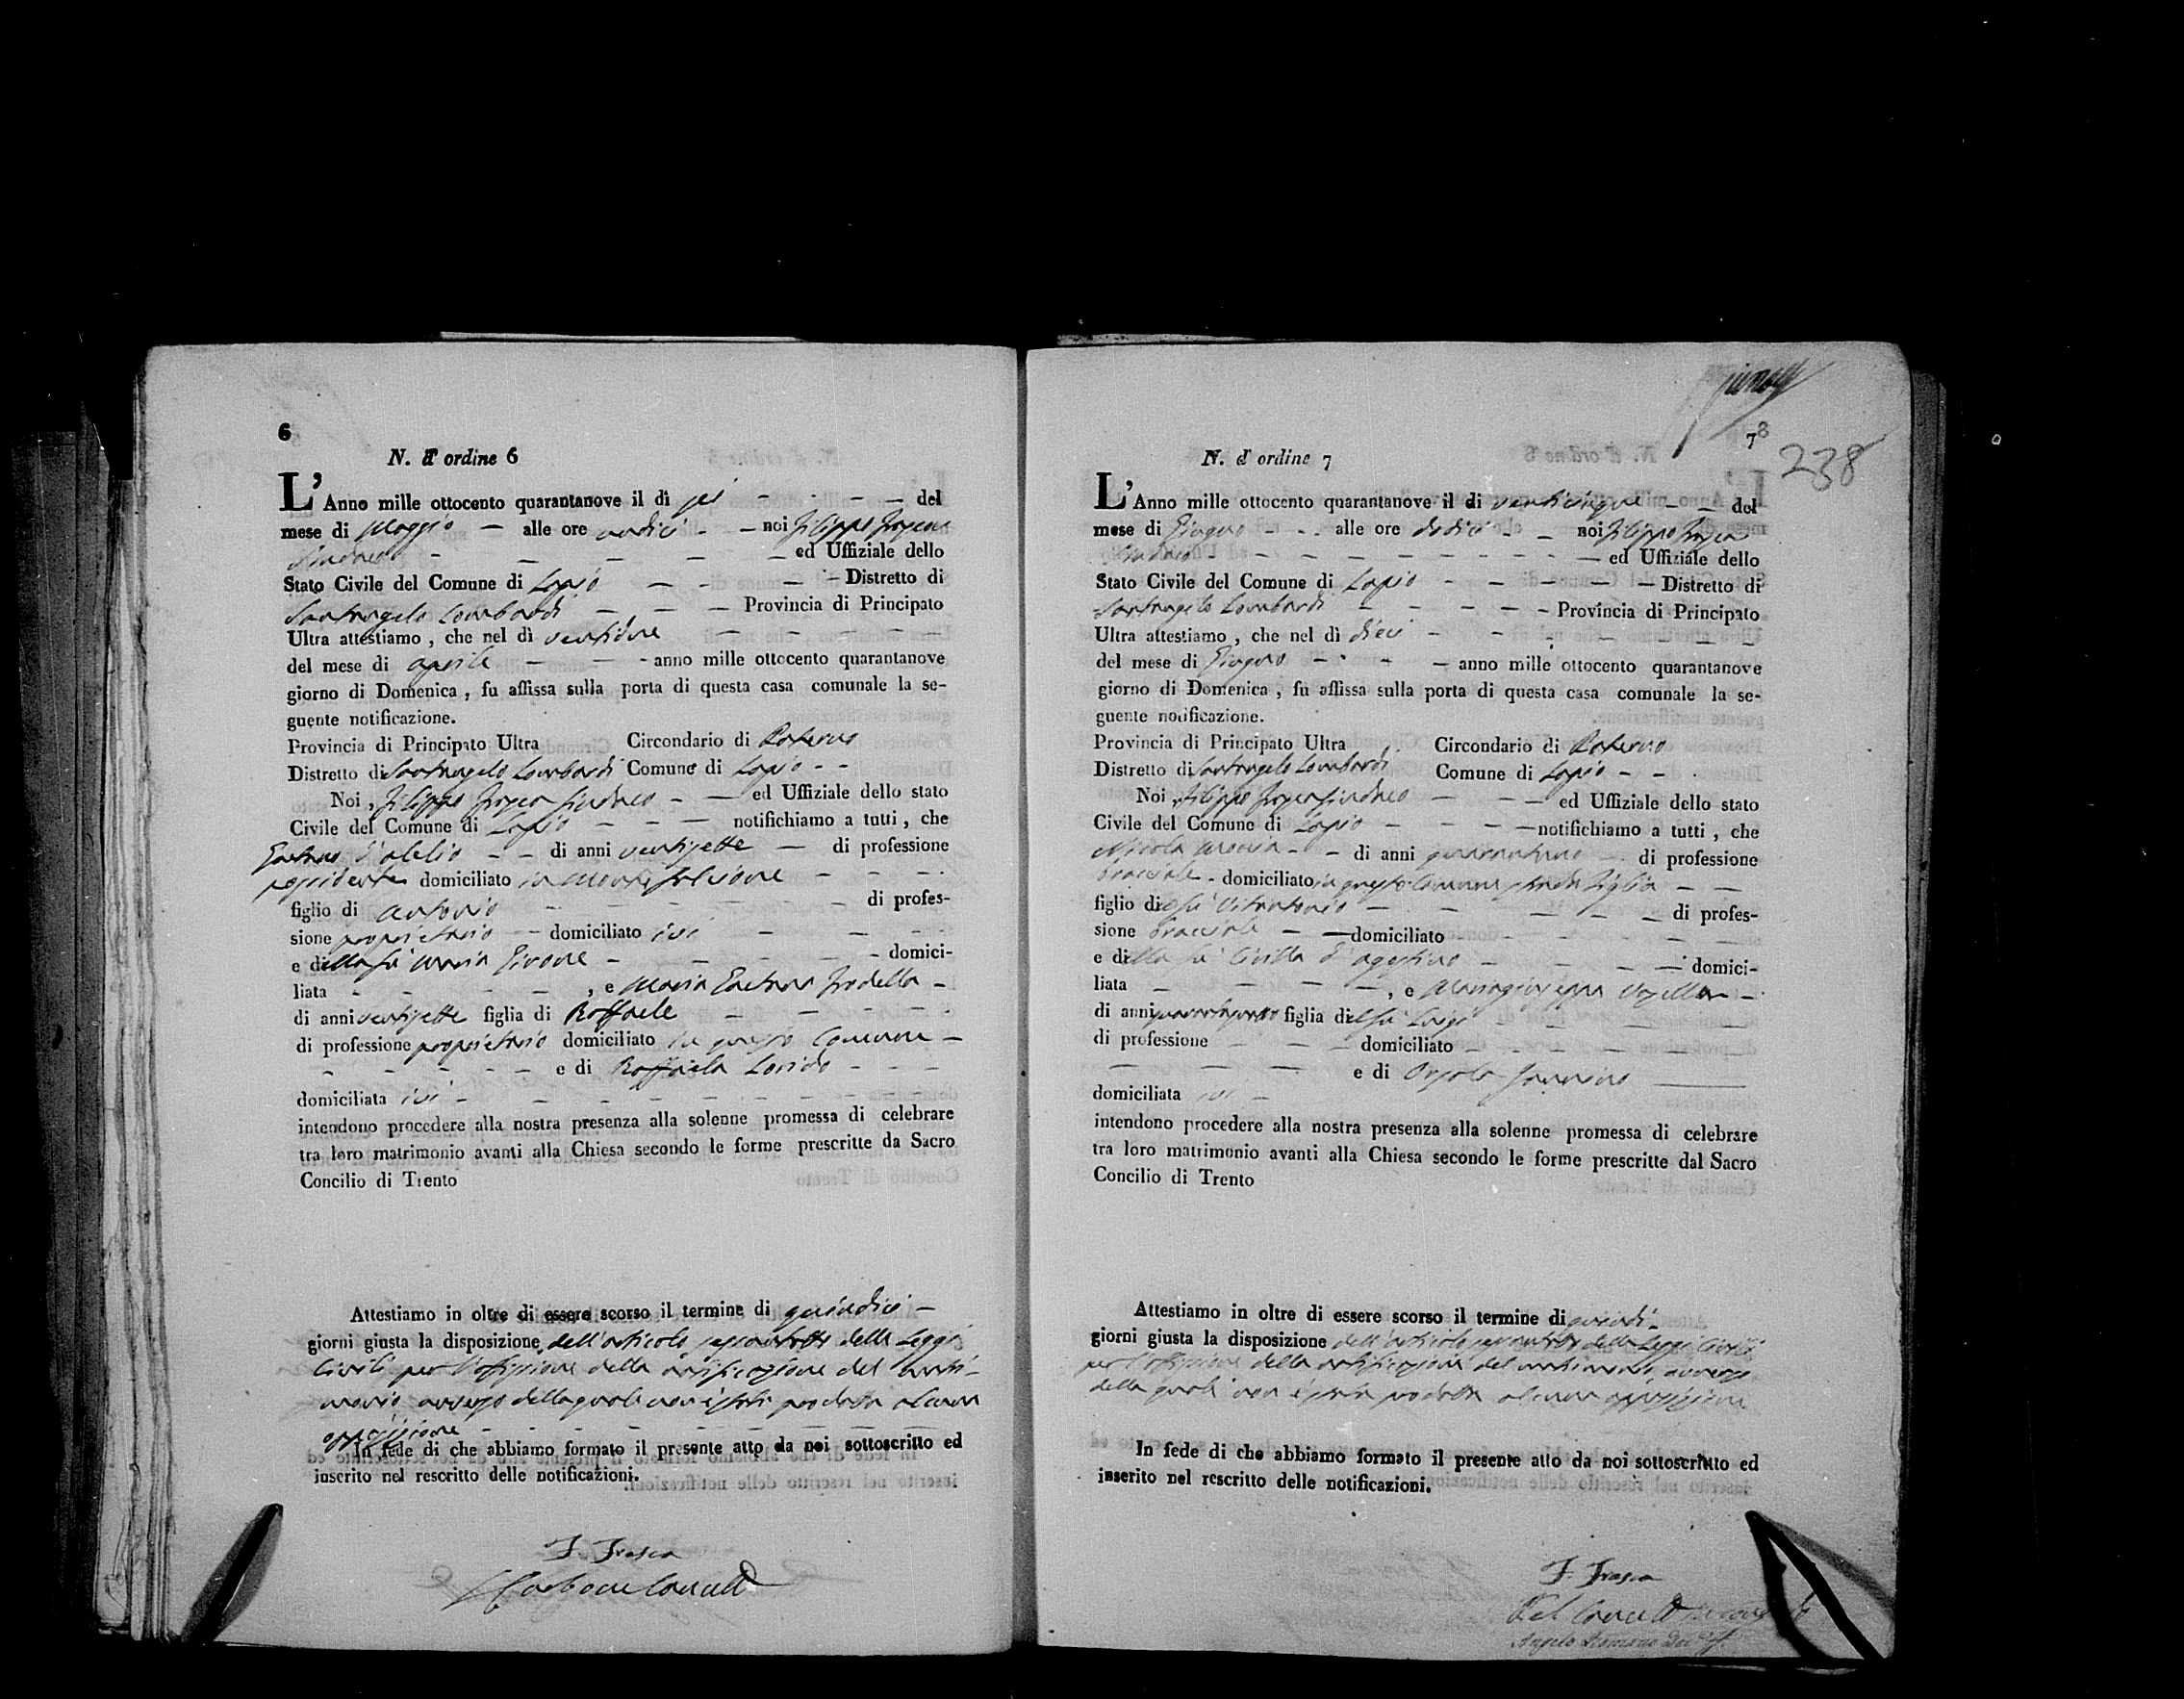 6
N. d' ordine 6
L'Anno mille ottocento quarantanove il dì sei - - - - del
mese di Maggio - alle ore undici - - noi Filippo Frasca
Sindaco - - - - - ed Uffiziale dello
Stato Civile del Comune di Lapio - - - - Distretto di
Santangelo Lombardi - - - Provincia di Principato
Ultra attestiamo , che nel dì ventidue - - - -
del mese di aprile - - - anno mille ottocento quarantanove
giorno di Domenica , fu affissa sulla porta di questa casa comunale la se-
guente notificazione.
Provincia di Principato Ultra Circondario di Paterno
Distretto di Santangelo Lombardi Comune di Lapio - -
Noi , Filippo Frasca Sindaco - - ed Uffiziale dello stato
Civile del Comune di Lapio - - - notifichiamo a tutti , che
Gaetano d'alelio - - di anni ventisette - di professione
domiciliato in Montefalcione - - - -
figlio di antonio - - - - di profes-
sione proprietario - domiciliato ivi - - -
e di della fu Maria Girone - - - - - domici-
liata - - - - , e Maria Gaetana Frodella -
di anni ventisette figlia di Raffaele - - - - -
di professione proprietario domiciliato in questo Comune -
- - - - - e di Raffaela - - -
domiciliata ivi - - - - - - - -
intendono procedere alla nostra presenza alla solenne promessa di celebrare
tra loro matrimonio avanti alla Chiesa secondo le forme prescritte da Sacro
Concilio di Trento
Attestiamo in oltre di essere scorso il termine di quindici -
giorni giusta la disposizione dell'articolo sessantotto delle Leggi
Civili per l'affissione della notificazione del matri-
monio avverso della quale non è stata prodotta alcuna
opposizione - - - - - - -
In fede di che abbiamo formato il presente atto da noi sottoscritto ed
inserito nel rescritto delle notificazioni.
F. Frasca
7
8
238
N. d' ordine 7
L'Anno mille ottocento quarantanove il di venticinque - - del
mese di Giugno - - - alle ore dodici - - noi Filippo Frasca
Sindaco - - - - - - - - ed Uffiziale dello
Stato Civile del Comune di Lapio - - - - - Distretto di
Santangelo Lombardi - - - - - Provincia di Principato
Ultra attestiamo , che nel dì dieci - - - - - -
del mese di Giugno - - - - anno mille ottocento quarantanove
giorno di Domenica , fu affissa sulla porta di questa casa comunale la se-
guente notificazione.
Provincia di Principato Ultra Circondario di Paterno
Distretto di Santangelo Lombardi Comune di Lapio - -
Noi , Filippo Frasca Sindaco - - - ed Uffiziale dello stato
Civile del Comune di Lapio - - - - notifichiamo a tutti , che
Nicola - - di anni di professione
bracciale - domiciliato in questo Comune - -
figlio di del fu Vitantonio - - - - - di profes-
sione bracciale - - domiciliato - - - -
e di della fu Civilla d'agostino - - - - domici-
liata - - - - , e Mariagiuseppa -
di anni figlia di del fu Luigi - - - -
di professione - - - domiciliato - - - - - -
- - - e di Orsola -
domiciliata ivi -
intendono procedere alla nostra presenza alla solenne promessa di celebrare
tra loro matrimonio avanti alla Chiesa secondo le forme prescritte dal Sacro
Concilio di Trento
Attestiamo in oltre di essere scorso il termine di quindi-
giorni giusta la disposizione dell'articolo sessantotto delle Leggi Civili
per l'affissione della notificazione del matrimonio, avverso
della quale non è stata prodotta alcuna opposizione
In fede di che abbiamo formato il presente atto da noi sottoscritto ed
inserito nel rescritto delle notificazioni.
F. Frasca